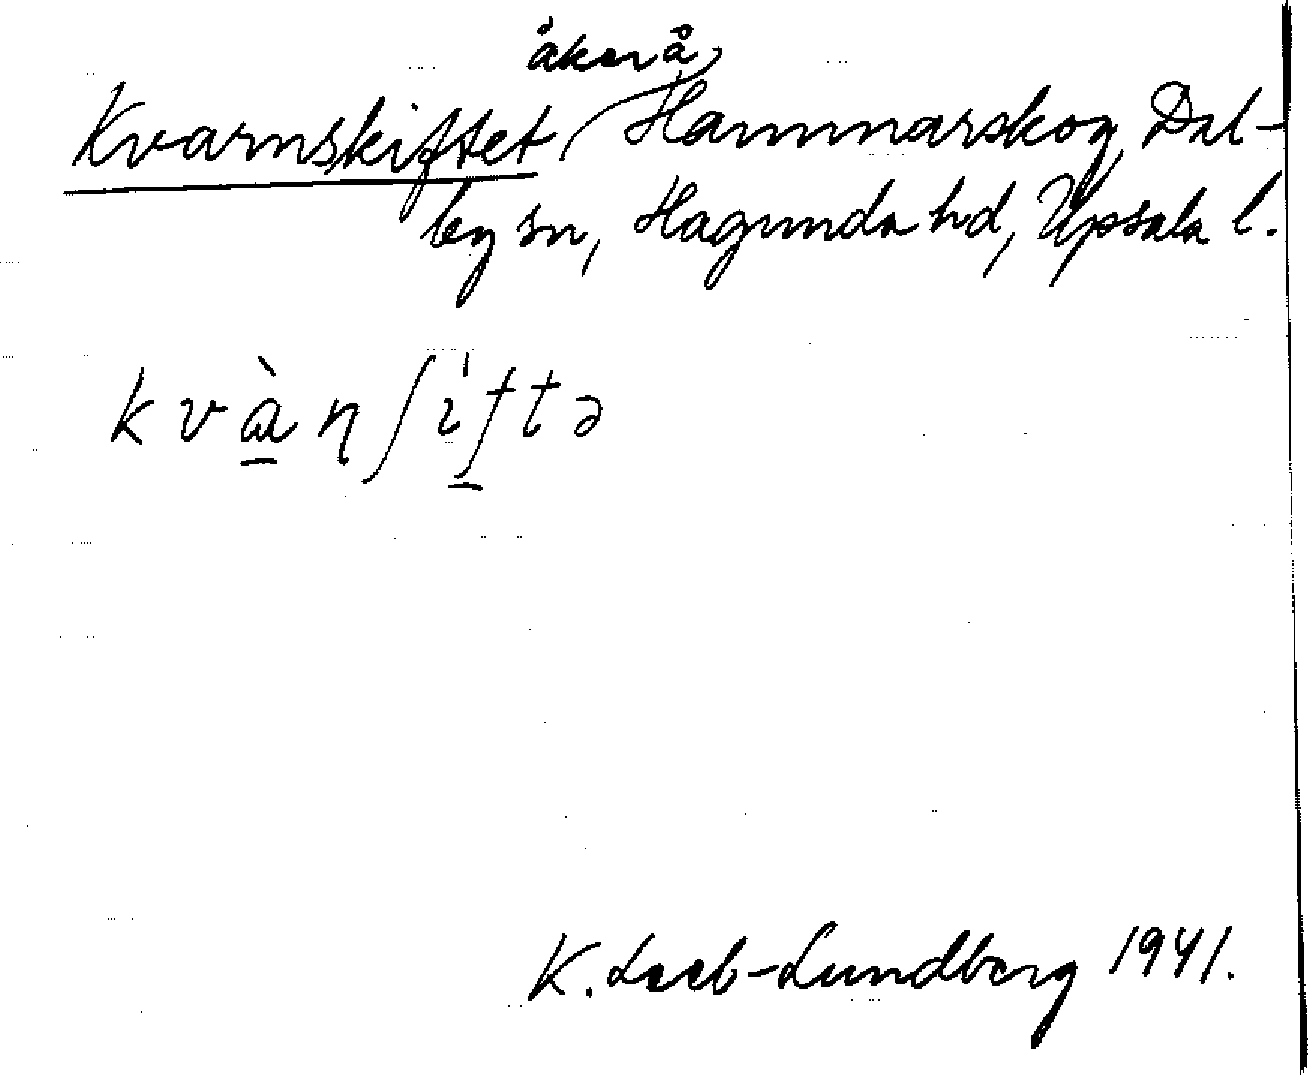 åker å
Kvarnskiftet, Hammarskog, Dal-
by sn, Hagunda hd, Upsala l.
kvàɳʃìftə
K. Leeb-Lundberg 1941.